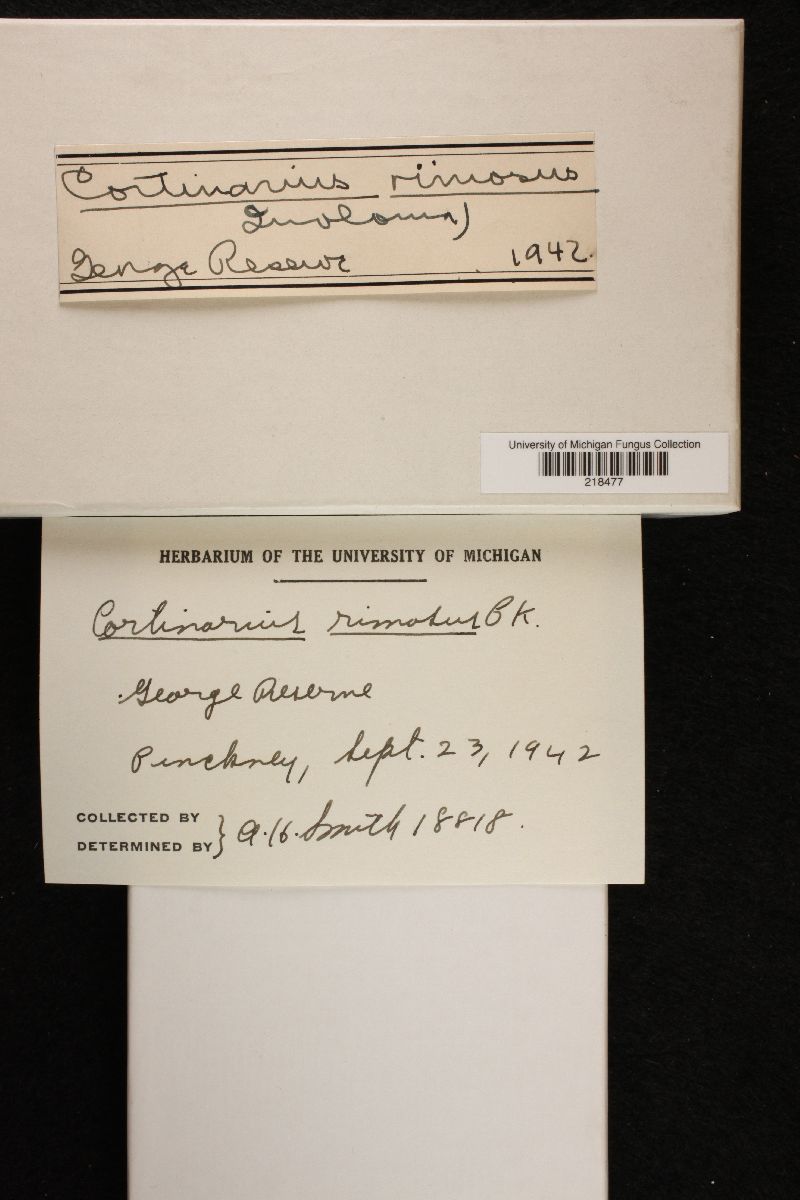 Cortinarius rimosus
Inoloma)
George Reserve 1942.
University of Michigan Fungus Collection
218477
HERBARIUM OF THE UNIVERSITY OF MICHIGAN
Cortinarius rimosus Pk.
George Reserve
Pinckney, Sept. 23, 1942
COLLECTED BY
DETERMINED BY } A. H. Smith 18818.